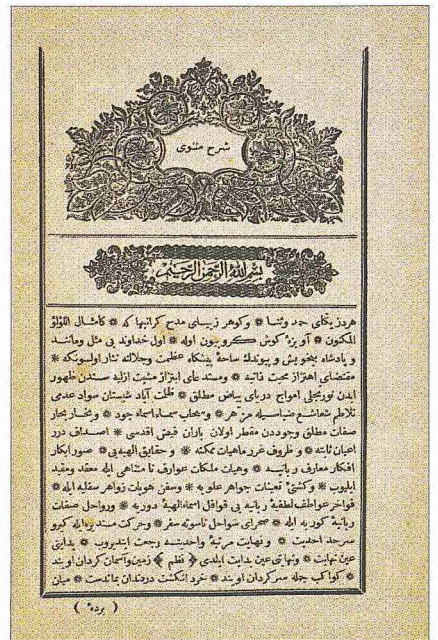 شرح مثنوی
بسم الله الرحمن الرحيم
هر در یکتای حمد وثنا ❋ وکوهر زیبای مدح کرانبها که ❋ کامثال اللؤلؤ
المکنون ❋ آویزهٔ کوش کروبیون اوله ❋ اول خداوند بی مثل ومانند
و پادشاه بیخویش و پیوندک ساحهٔ پیشکاه عظمت وجلالنه نثار اولسونکه ❋
مقتضای اهتزاز محبت ذاتیه ❋ ومستدعای ابتزاز مشیت ازلیه سندن ظهور
ایدن نوریجلی امواج دریای بیاض مطلق ❋ ظلمت آباد شبستان سواد عدمی
تلاطم شعاشع ضیاسیله ❋ وسحاب سماء اسماء جود ❋ وبخار بحار
صفات مطلق وجوددن مقطر اولان باران فیض اقدسی ❋ اصداف درر
اعیان ثابته ❋ وظروف غرر ماهیات ممکنه ❋ و حقایق الهیه یی ❋ صور ابکار
افکار معارف ربانیه ❋ وهیات ملکات عوارف نامتناهی ایله معقد ومقید
ایلیوب ❋ وکشتیٔ تعینات جواهر علویه ❋ وسفن هویات زواهر سفلیه ایله ❋
قواخر عواطف لطفیهٔ ربانیه یی قوافل اسماء الهیهٔ دوریه ❋ ورواحل صفات
ربانیهٔ کوریه ایله ❋ صحرای سواحل ناسوته سفر ❋ وحرکت ایله کیرو
سرحد احدیت ❋ و نهایت مرتبهٔ واحدیته رجعت ایتدیروب ❋ بدایتی
عین نهایت ❋ ونهایتی عین بدایت ایلدی ﴿ نظم ﴾ زمین وآسمان کردان اویند
❋ کواکب جمله سرکردان اویند ❋ خرد انکشت دردندان بماندست ❋ میان
( پرده )